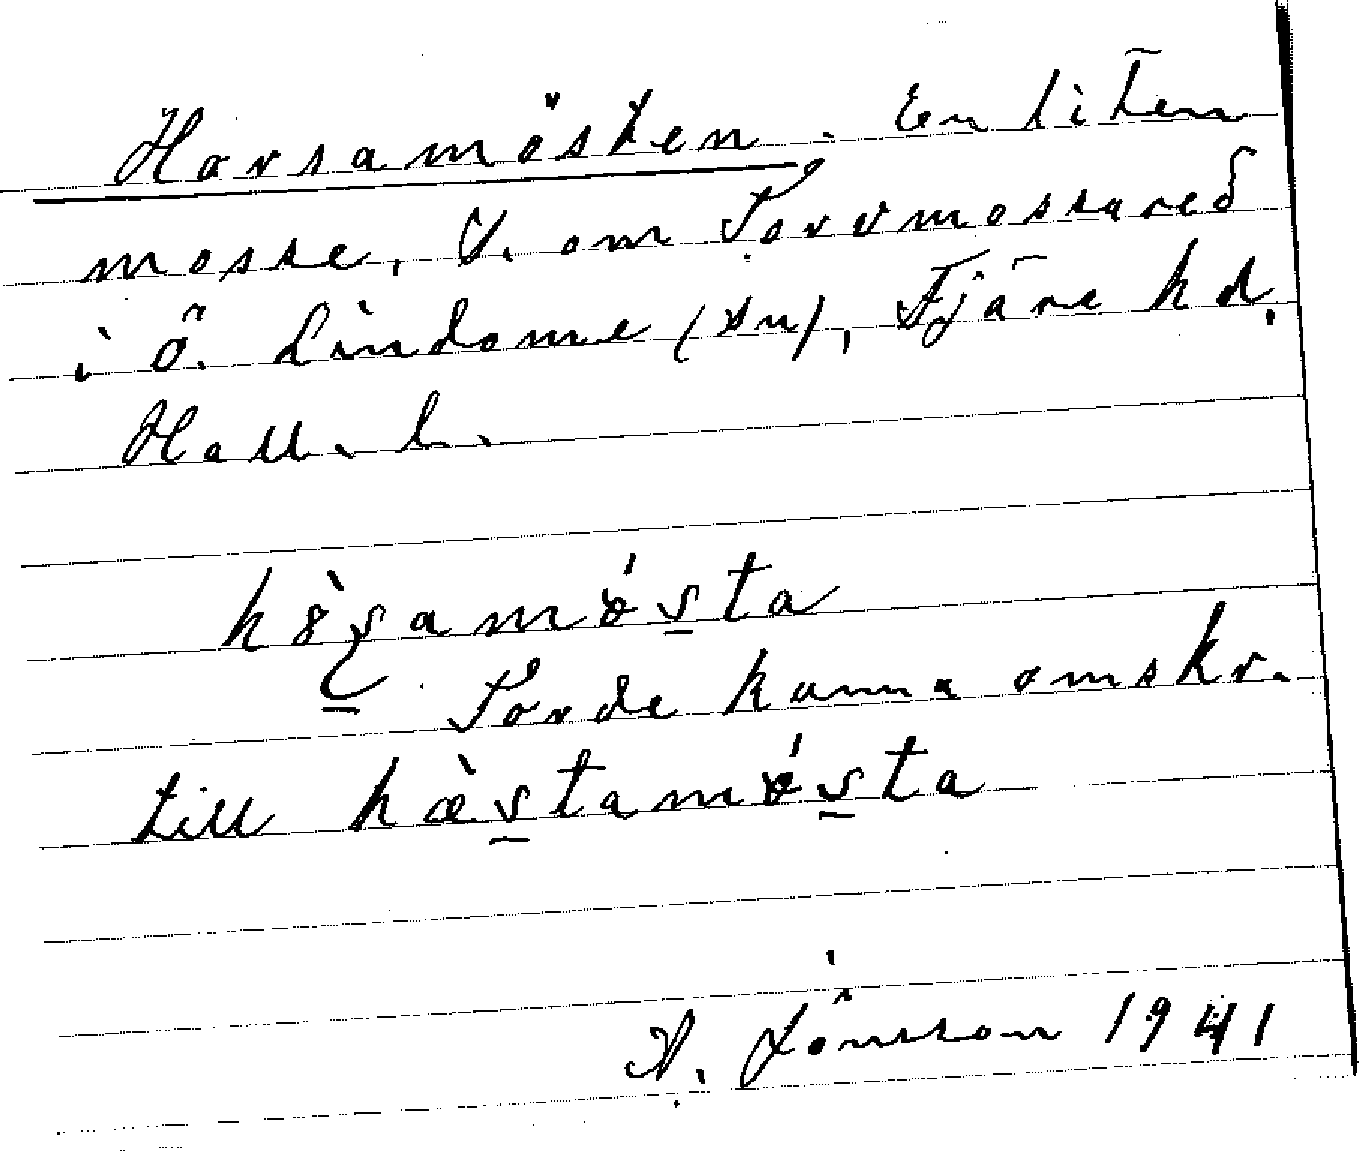 Horsamösten. En liten
mosse, V. om Torvmossared
i ö. Lindome (sn), Fjäre hd,
Hall. l.
Torde kunna omskr.
till hæ̀s̠tamǿs̠ta
A. Jönsson 1941